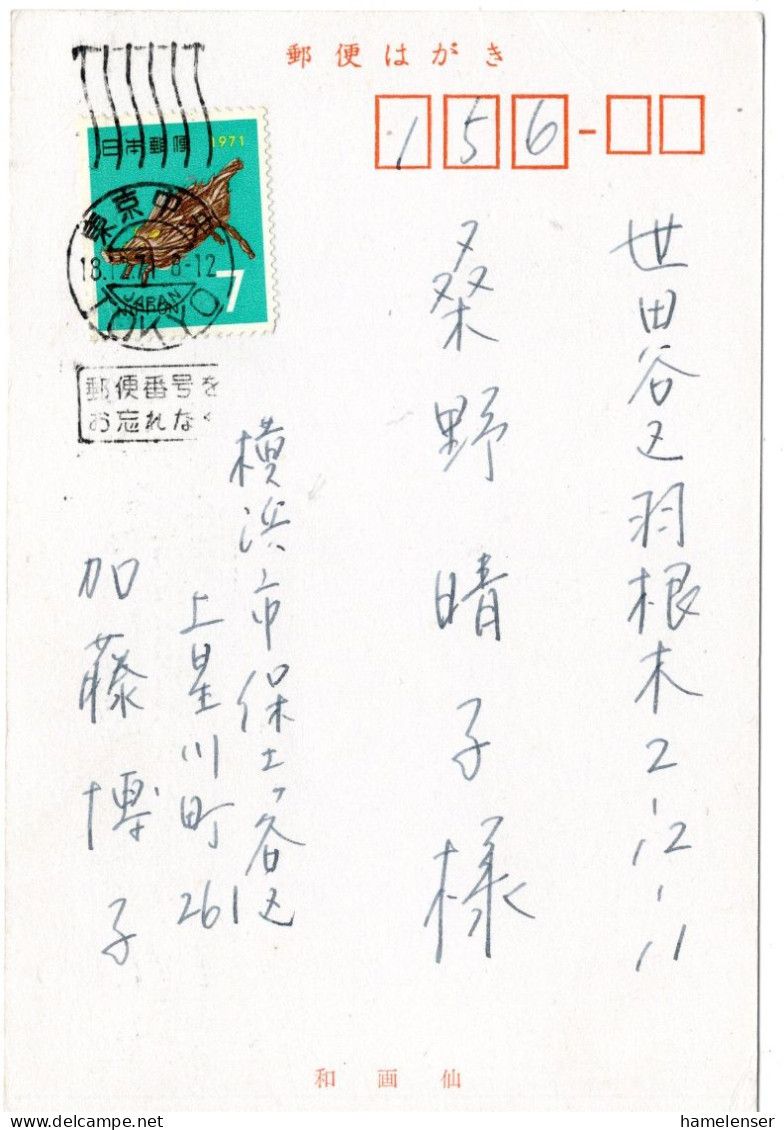 郵便はがき
156-
世田谷区羽根木2-12-11
桑野晴子様
日本郵便 1971
7
東京中央
18.12.71 8-12
JAPAN
NIPPON
TOKYO
郵便番号を
お忘れなく
横浜市保土ヶ谷区
上星川町261
加藤博子
和画仙
hamelenser